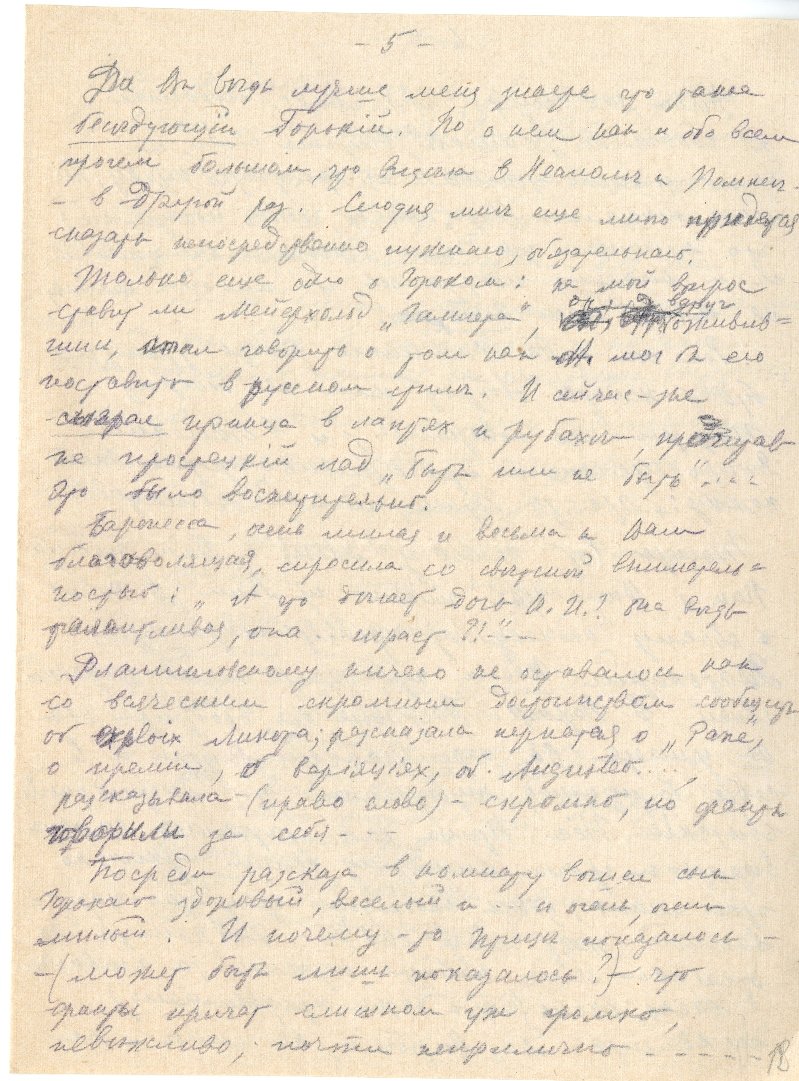 - 5 -
Да Вы вѣдь лучше меня знаете что такое
бесѣдующій Горькій. Но о нем как и обо всем
прочем большом, что видѣла в Неаполѣ и Помпеи -
- в другой раз. Сегодня мнѣ еще много придется
сказать непосредственно нужнаго, обязательнаго.
Только еще одно о Горьком: на мой вопрос
ставит ли Мейерхольд „Гамлета", он вдруг оживив=
шись, стал говорить о том как М. мог бы его
поставить в русском стилѣ. И сейчас-же
сыграл принца в лаптях и рубахѣ, прочитав
на простецкій лад „Быть или не быть"....
Это было восхитительно.
Баронесса, очень милая и весьма к Вам
благоволящая, спросила со свѣтской вниматель=
ностью: „А что дѣлает дочь В. И.? она вѣдь
талантливая, она .. играет?!"..
ничего не оставалось как
со всяческим скромным достоинством сообщить
об ; разсказала о „Рахе",
о преміи, о варіяціях, об Augusteo....,
разсказывала - (право слово) - скромно, но факты
говорили за себя - - -
Посреди разсказа в комнату вошел сын
Горькаго здоровый, веселый и ... и очень, очень
милый. И почему-то птицы показалось -
- (может быть лишь показалось?) - что
факты кричат слишком уж громко,
невѣжливо, почти неприлично - - - - -
18